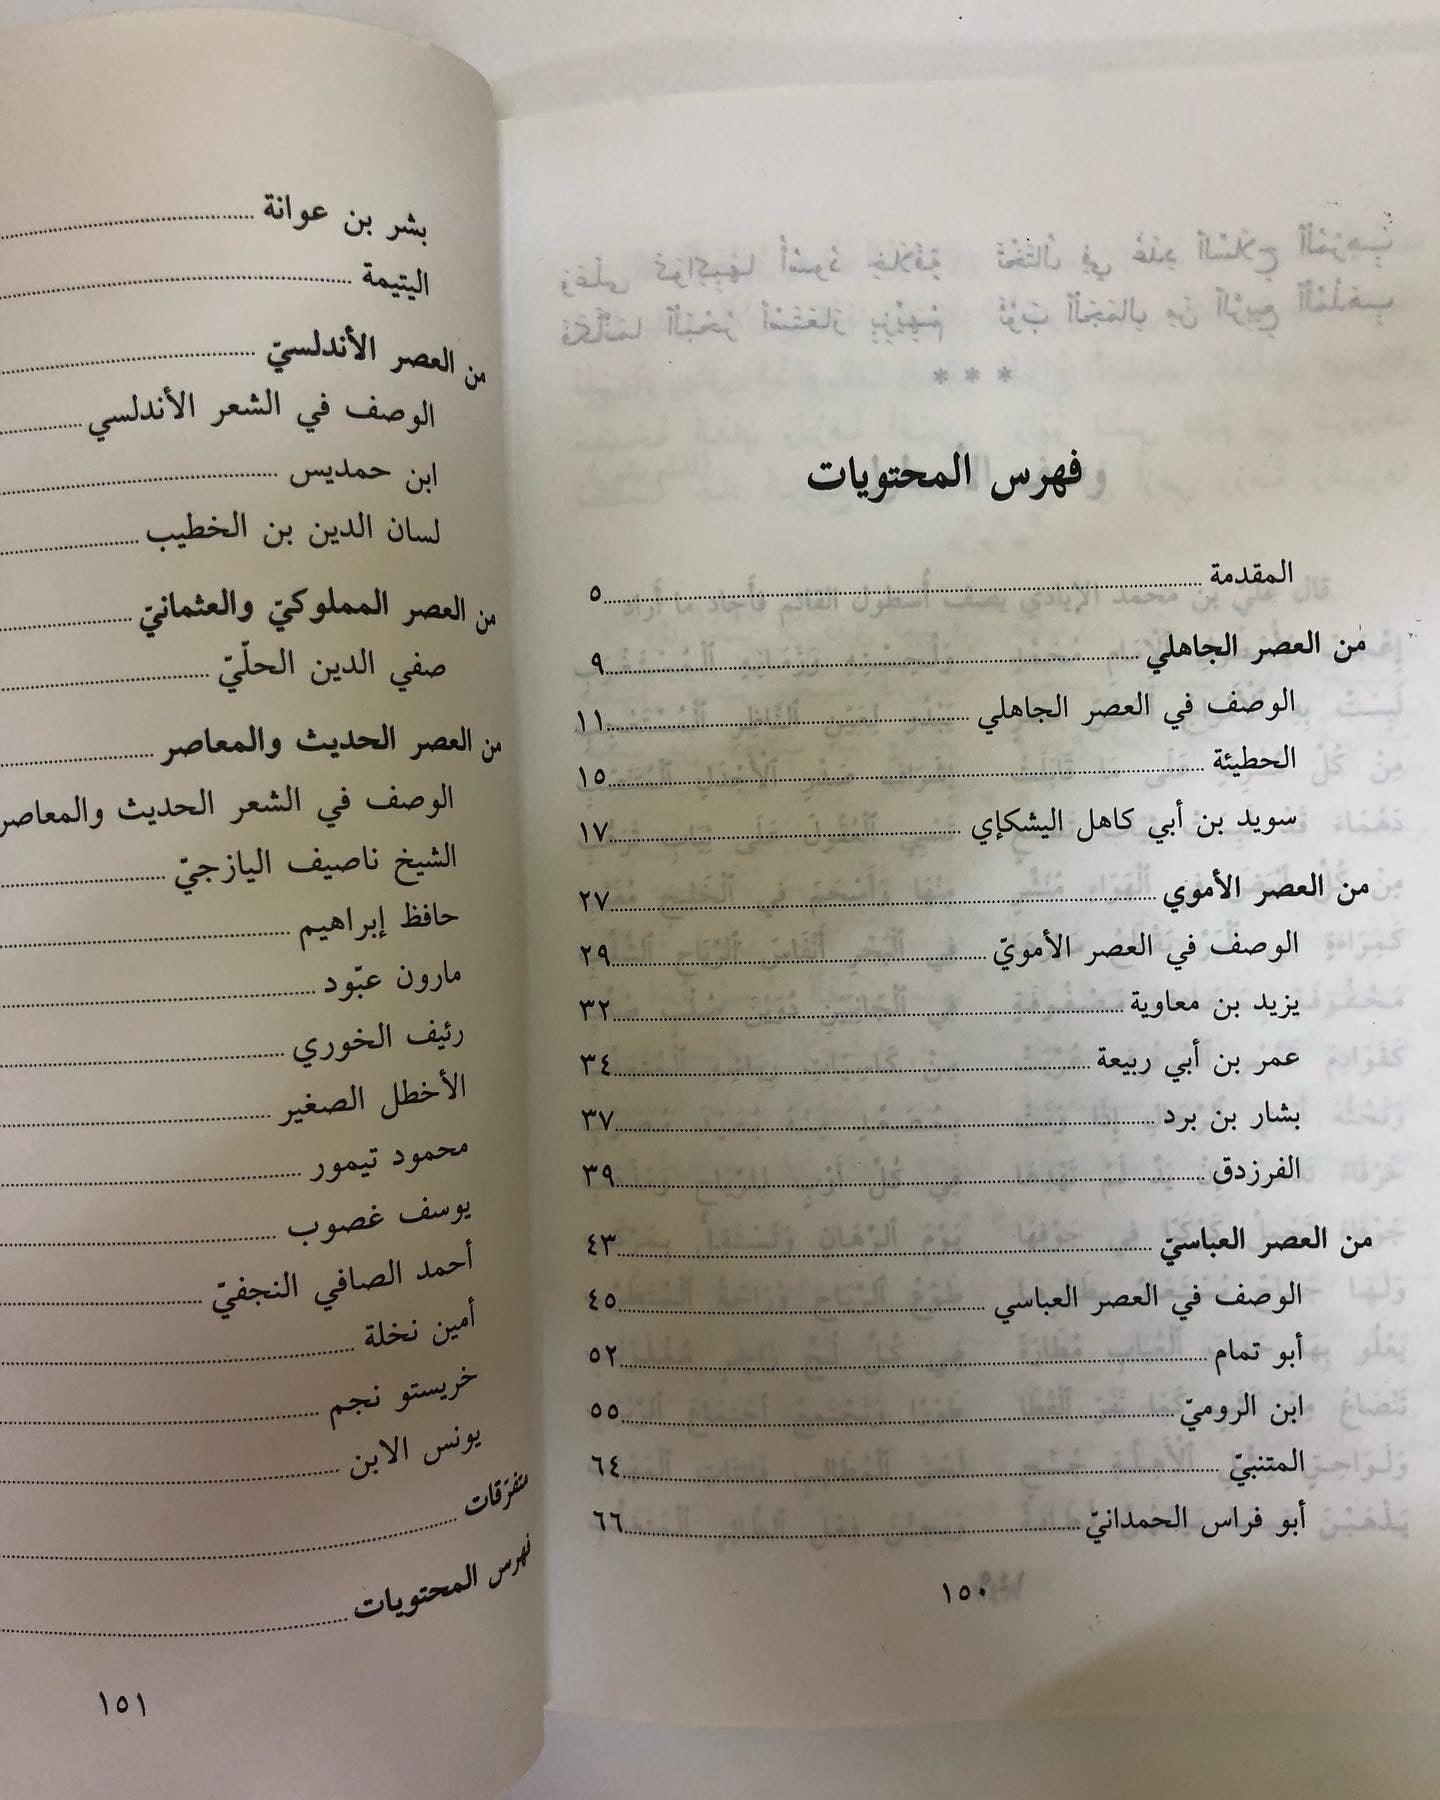 فهرس المحتويات
المقدمة ............ ٥
من العصر الجاهلي ............ ٩
الوصف في العصر الجاهلي ............ ١١
الحطيئة ............ ١٥
سويد بن أبي كاهل اليشكإي ............ ١٧
من العصر الأموي ............ ٢٧
الوصف في العصر الأمويّ ............ ٢٩
يزيد بن معاوية ............ ٣٢
عمر بن أبي ربيعة ............ ٣٤
بشار بن برد ............ ٣٧
الفرزدق ............ ٣٩
من العصر العباسيّ ............ ٤٣
الوصف في العصر العباسي ............ ٤٥
أبو تمام ............ ٥٢
ابن الروميّ ............ ٥٥
المتنبيّ ............ ٦٤
أبو فراس الحمدانيّ ............ ٦٦
١٥٠
بشر بن عوانة ............
اليتيمة ............
من العصر الأندلسيّ ............
الوصف في الشعر الأندلسي ............
ابن حمديس ............
لسان الدين بن الخطيب ............
من العصر المملوكيّ والعثمانيّ ............
صفي الدين الحلّيّ ............
من العصر الحديث والمعاصر ............
الوصف في الشعر الحديث والمعاصر
الشيخ ناصيف اليازجيّ ............
حافظ إبراهيم ............
مارون عبّود ............
رئيف الخوري ............
الأخطل الصغير ............
محمود تيمور ............
يوسف غصوب ............
أحمد الصافي النجفيّ ............
أمين نخلة ............
خريستو نجم ............
يونس الابن ............
متفرّقات ............
فهرس المحتويات ............
١٥١